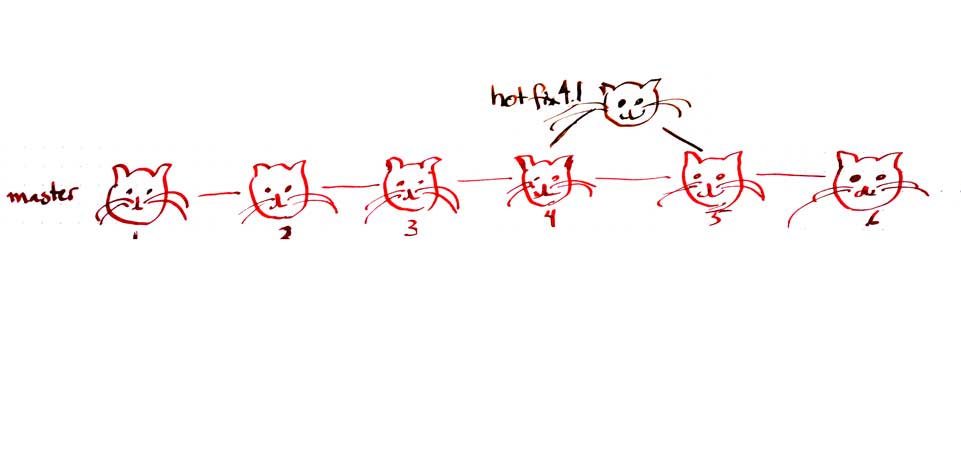 hotfix 4.1
master
1 2 3 4 5 6